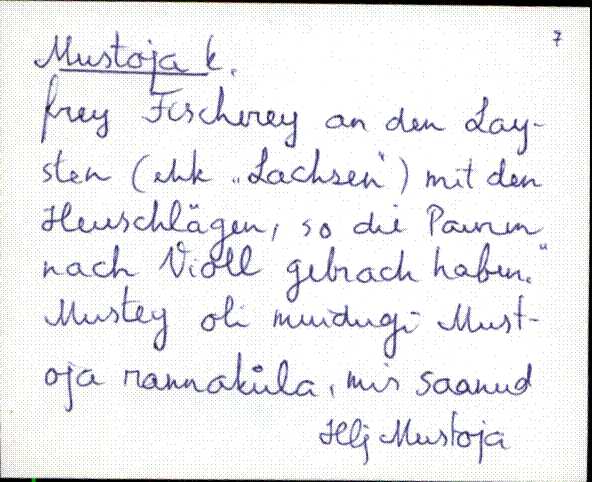 7
Mustoja k.
frey Fischerey an den Lay-
sten (ehk „Lachsen“) mit den
Heuschlägen, so die Pauren
nach Violl gebrach haben."
Mustey oli muidugi Must-
oja rannaküla, mis saanud
Hlj Mustoja